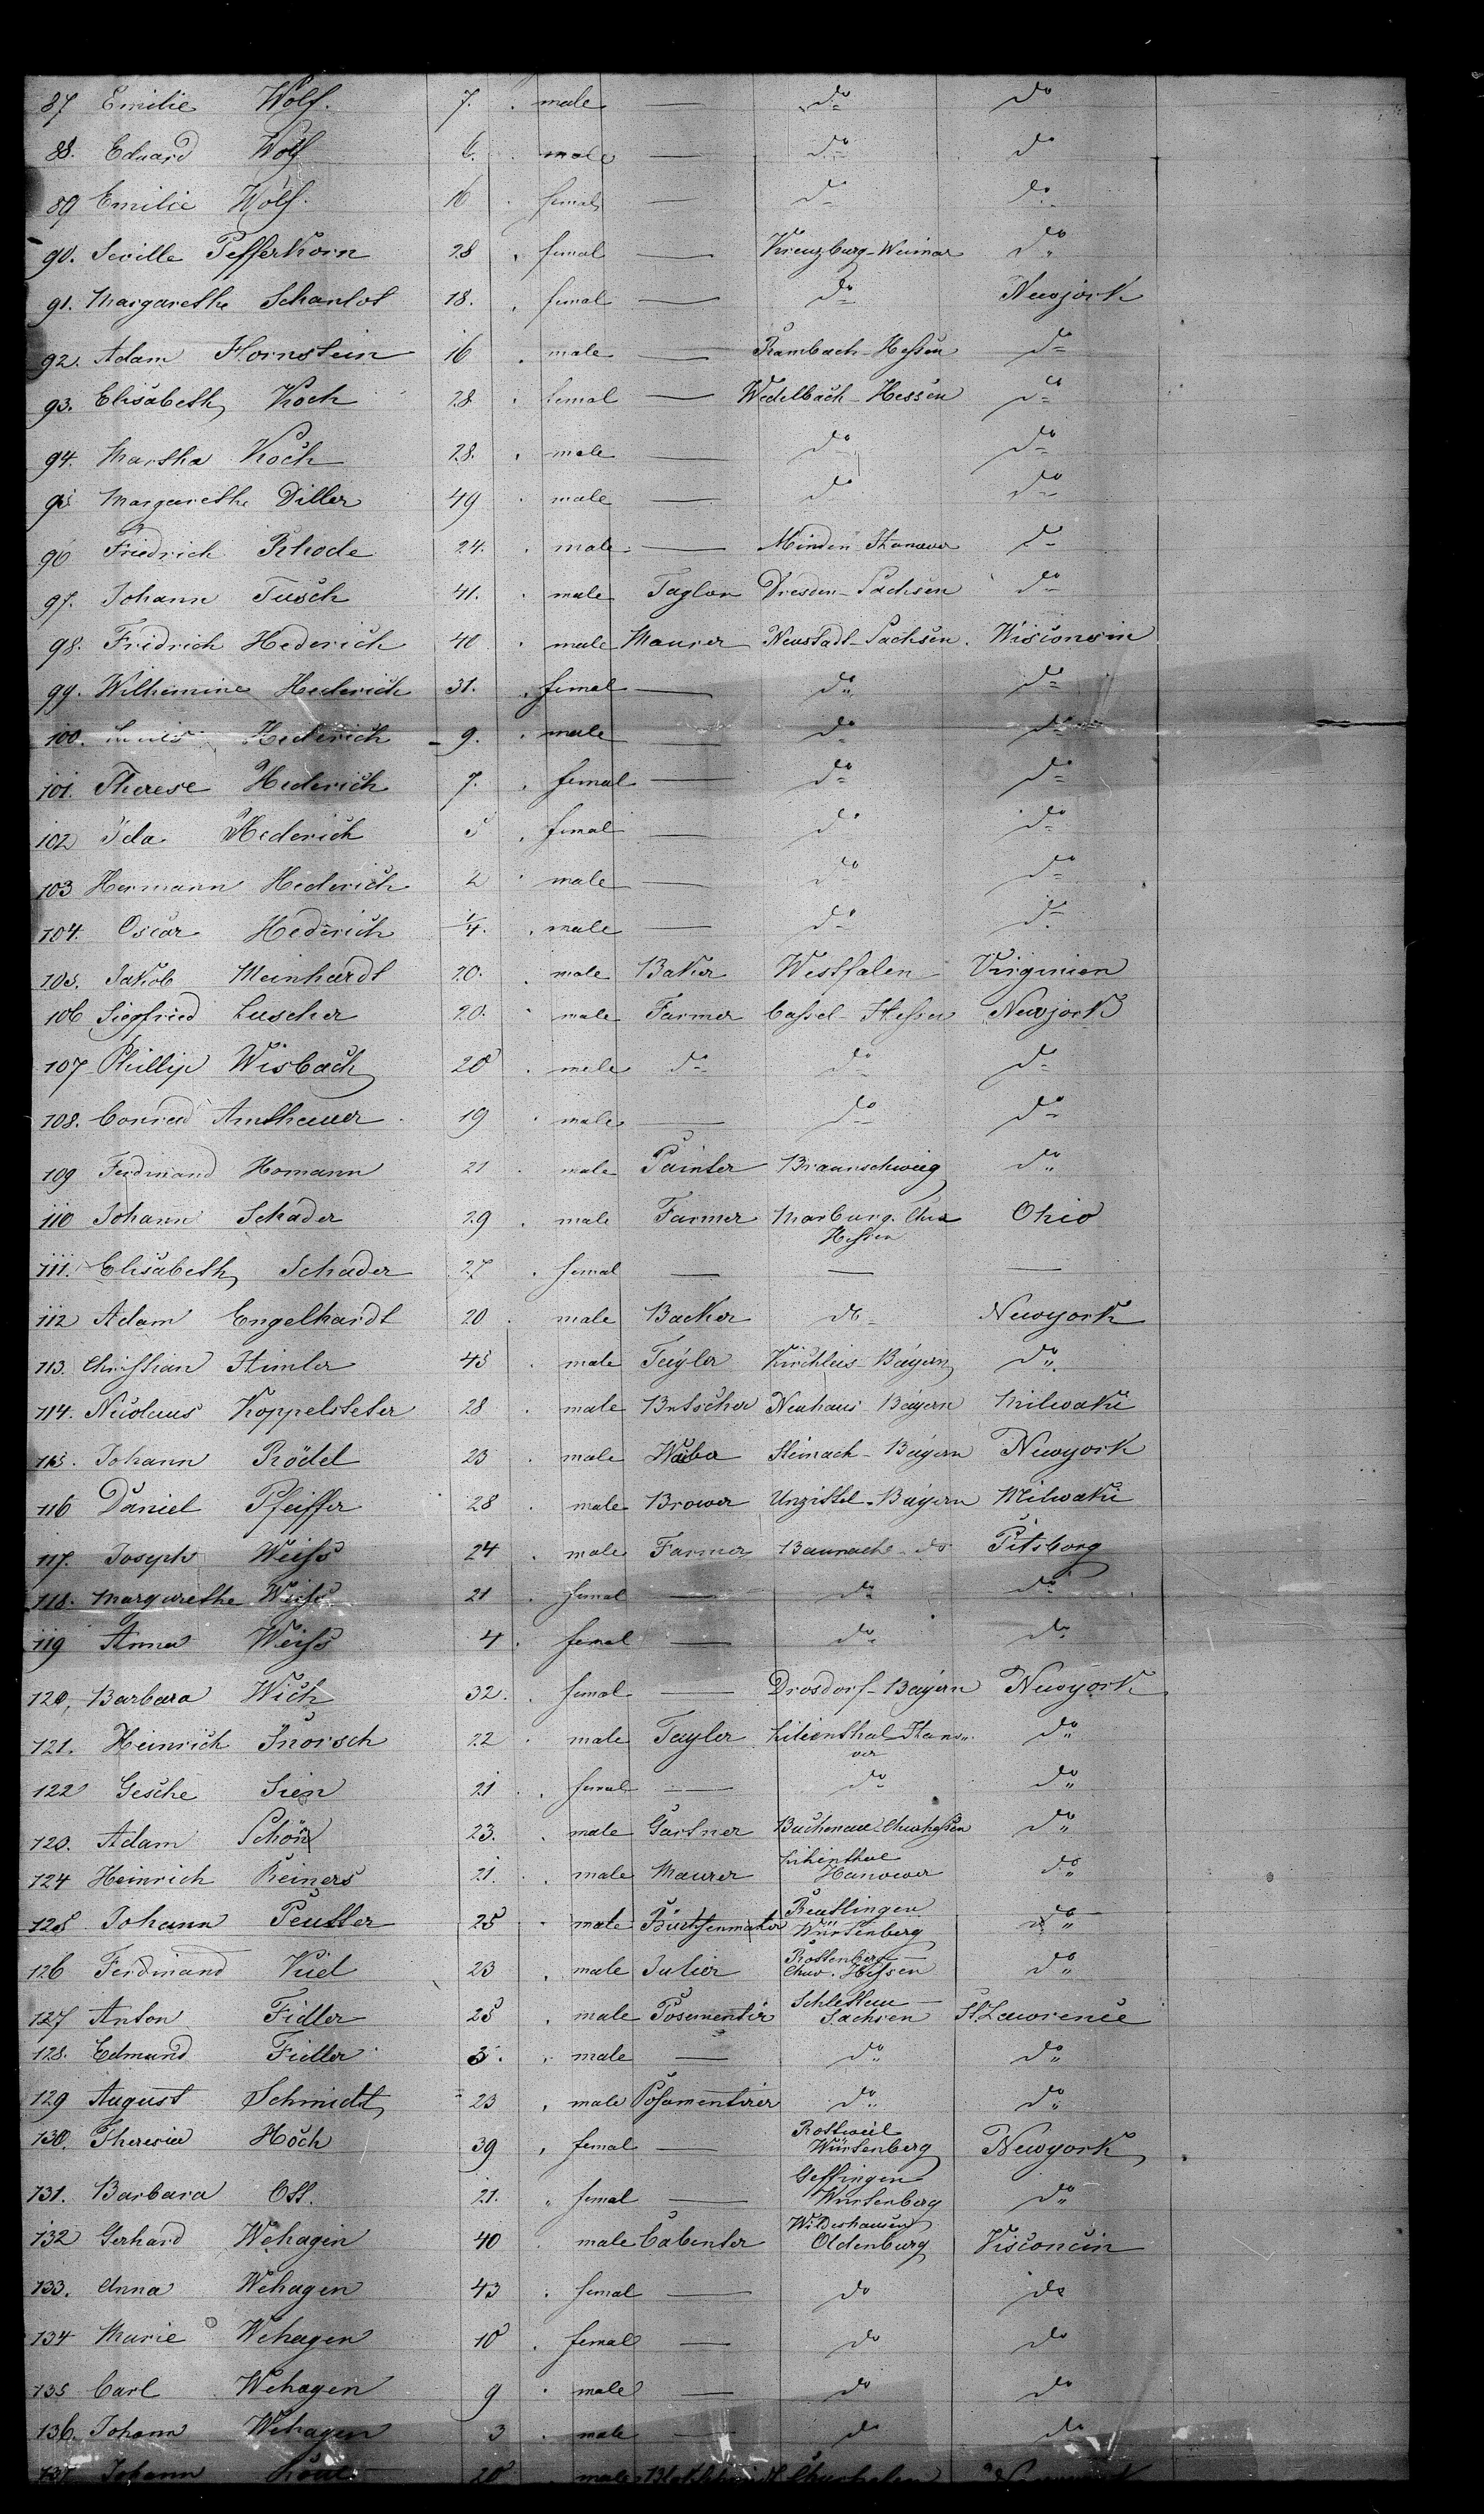 87 Emilie Wolf. 7. male — do do
88. Eduard Wolf 6. male — do do
89 Emilie Wolf. 16 femal — do do
90. Seville Pefferkorn 28 femal — Kreuzburg-Weimar do
91. Margarethe Schanlot 18. femal — do Newjork
92. Adam Hornstein 16 male — Rambach-Hessen do
93. Elisabeth Koch 28 femal — Wedelbach-Hessen do
94. Martha Koch 28. male — do do
95 Margarethe Diller 49 male — do do
96 Friedrich Rhode 24. male — Minden Hanover do
97. Johann Tusch 41. male Taylor Dresden-Sachsen do
98. Fridrich Hederich 40 male Maurer Neustadt-Sachsen. Wisconsin
99. Wilhemine Hederich 31. femal — do do
100. Hederich 9. male — do do
101. Therese Hederich 7. femal — do do
102 Ida Hederich 5 femal — do do
103 Hermann Hederich 2 male — do do
104. Oscar Hederich 1/4. male — do do
105. Jakob Meinhardt 20. male Baker Westfalen Virginien
106 Siegfried Luscher 20. male Farmer Cassel-Hessen Newjork
107 Phillip Wisbach 20 male do do do
108. Conrad Amthauer 19 male — do do
109 Ferdinand Homann 21 male Painter Braunschweig do
110 Johann Schader 29 male Farmer Marburg. Chur Ohio
Hessen
111. Elisabeth Schader 27 femal — — —
112 Adam Engelhardt 20 male Backer do Newyork
113. Christian Himler 45 male Tayler Kirchleis-Bayern do
114. Nicolaus Koppelsteter 28 male Butscher Neuhaus Bayern Milwaki
115. Johann Rödel 23 male Steinach-Bayern Newyork
116 Daniel Pfeiffer 28 male Brower Bayern Milwaki
117. Joseph Weiss 24 male Farmer Baunach do Pitsborg
118. Margarethe Weiss 21 femal — do do
119 Anna Weiss 4 femal — do do
120, Barbara Wich 32. femal — Drosdorf-Bayern Newyork
121. Heinrich Snorsch 22 male Tayler Lilienthal Hano
ver do
122 Gesche Sien 21 femal — do do
123. Adam Schön 23. male Gartner Buchenau Churhessen do
124 Heinrich Reiners 21. male Maurer Lilienthal
Hanower do
125 Johann Peutler 25 male Büchsenmaker Reutlingen
Würtenberg do
126 Ferdinand Viel 23 male Rottenberg
Chur. Hessen do
127 Anton Fidler 25 male Posementir Schlettau
Sachsen St. Lawrence
128. Edmund Fidler 3. male — do do
129 August Schmidt 23 male Posamentirer do do
130. Theresia Höch 39 femal — Rottweil
Würtenberg Newyork
131. Barbara Ott. 21. femal — Geffingen
Würtenberg do
132 Gerhard Wehagen 40 male Cabenter Wildeshausen
Oldenburg Visconcin
133. Anna Wehagen 43 femal — do do
134 Marie Wehagen 10 femal — do do
135 Carl Wehagen 9 male — do do
136. Johann Wehagen 3 male — do do
137 Johann 20 male